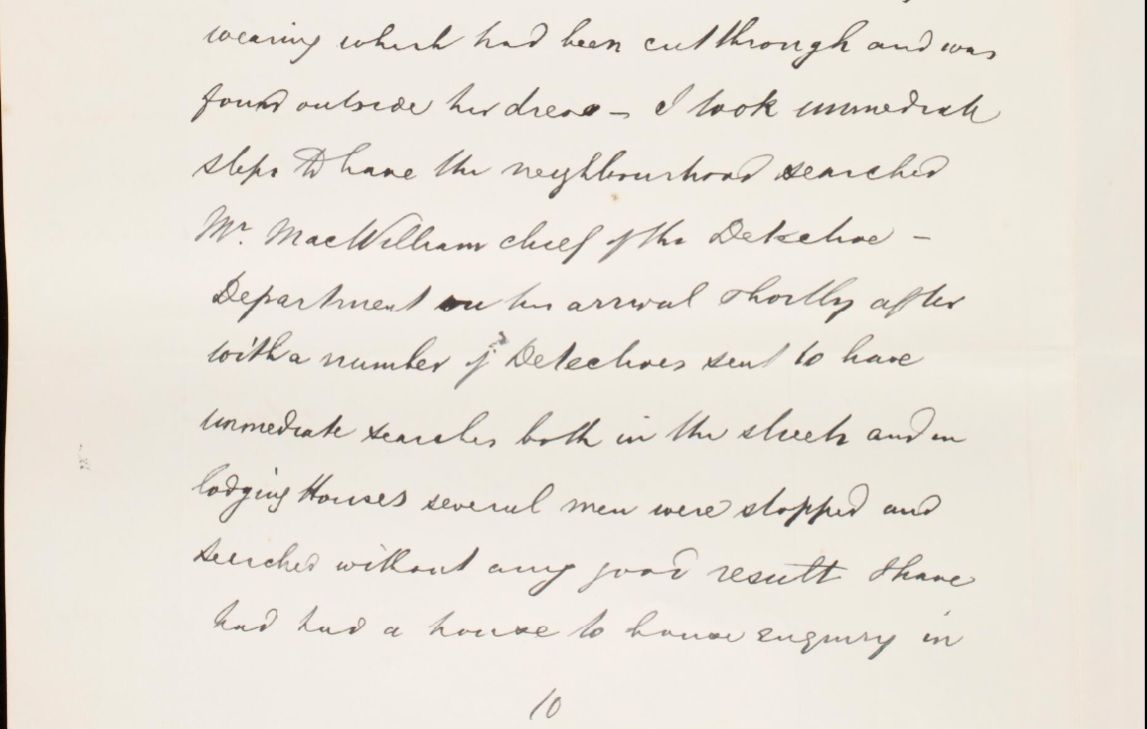 wearing which had been cut through and was
found outside her dress – I took immediate
steps to have the neighbourhood searched
Mr. MacWilliam chief of the Detective –
Department on his arrival shortly after
with a number of Detectives sent to have
immediate searches both in the streets and in
lodging Houses several men were stopped and
searched without any good result I have
had had a house to house enquiry in
10